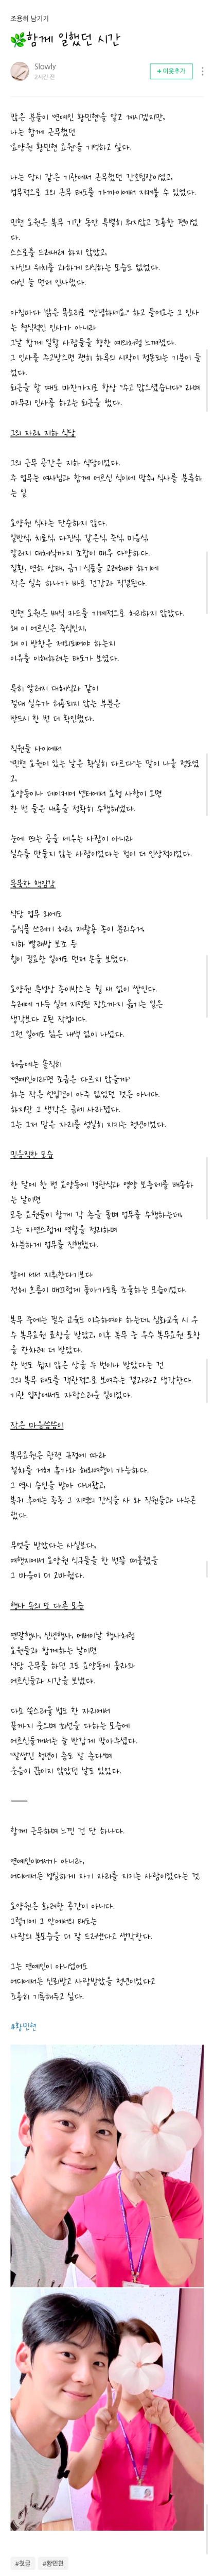 조용히 남기기
🌿함께 일했던 시간
Slowly
2시간 전
+ 이웃추가
많은 분들이 '연예인 황민현'을 알고 계시겠지만,
나는 함께 근무했던
'요양원 황민현 요원'을 기억하고 싶다.
나는 당시 같은 기관에서 근무했던 간호팀장이었고,
업무적으로 그의 근무 태도를 가까이에서 지켜볼 수 있었다.
민현 요원은 복무 기간 동안 특별히 튀지않고 조용한 편이었
다.
스스로를 드러내려 하지 않았고,
자신의 위치를 과하게 의식하는 모습도 없었다.
대신 늘 먼저 인사했다.
아침마다 밝은 목소리로 "안녕하세요." 하고 들어오는 그 인사
는 형식적인 인사가 아니라
그날 함께 일할 사람들을 향한 예의처럼 느껴졌다.
그 인사를 주고받으면 괜히 하루의 시작이 정돈되는 기분이 들
었다.
퇴근을 할 때도 마찬가지로 항상 "수고 많으셨습니다" 라며
마무리 인사를 하고는 퇴근을 했다.
그의 자리, 지하 식당
그의 근무 공간은 지하 식당이었다.
주 업무는 여사님과 함께 어르신 식이에 맞춰 식사를 분류하
는 일
요양원 식사는 단순하지 않다.
일반식, 치료식, 다짐식, 갈은식, 죽식, 미음식,
알러지 대체식까지 조합이 매우 다양하다.
질환, 연하 상태, 금기 식품을 고려해야 하기에
작은 실수 하나가 바로 건강과 직결된다.
민현 요원은 배식 카드를 기계적으로 처리하지 않았다.
왜 이 어르신은 죽식인지,
왜 이 반찬은 제외되어야 하는지
이유를 이해하려는 태도가 보였다.
특히 알러지 대체식과 같이
절대 실수가 허용되지 않는 부분은
반드시 한 번 더 확인했다.
직원들 사이에서
"민현 요원이 있는 날은 확실히 다르다"는 말이 나올 정도였
고,
요양동이나 데이케어 센터에서 요청 사항이 오면
한 번 들은 내용을 정확히 수행해냈다.
눈에 띄는 공을 세우는 사람이 아니라
실수를 만들지 않는 사람이었다는 점이 더 인상적이었다.
묵묵한 책임감
식당 업무 외에도
음식물 쓰레기 처리, 재활용 종이 분리수거,
지하 빨래방 보조 등
힘이 필요한 일에도 먼저 손을 보탰다.
요양원 특성상 종이박스는 쉴 새 없이 쌓인다.
수레에 가득 실어 지정된 장소까지 옮기는 일은
생각보다 고된 작업이다.
그런 일에도 싫은 내색 없이 나섰다.
처음에는 솔직히
'연예인이라면 조금은 다르지 않을까'
하는 작은 선입견이 아주 없었던 것은 아니다.
하지만 그 생각은 금세 사라졌다.
그는 그저 맡은 자리를 성실히 지키는 청년이었다.
믿음직한 모습
한 달에 한 번 요양동에 개관식사와 영양 보충제를 배송하
는 날이면
모든 요원들이 함께 각 층을 돌며 업무를 수행하는데,
그는 자연스럽게 역할을 정리하며
차분하게 업무를 진행했다.
앞에 서서 지휘한다기보다
전체 흐름이 매끄럽게 돌아가도록 조율하는 모습이었다.
복무 중에는 필수 교육도 이수하여야 하는데, 심화교육 시 우
수 복무요원 표창을 받았고, 이후 복무 중 우수 복무요원 표창
을 한차례 더 받았다.
한 번도 쉽지 않은 상을 두 번이나 받았다는 건
그의 복무 태도를 객관적으로 보여주는 결과라고 생각한다.
기관 입장에서도 자랑스러운 일이었다.
작은 마음씀씀이
복무요원은 관련 규정에 따라
절차를 거쳐 휴가와 해외여행이 가능하다.
그 역시 승인을 받아 다녀왔고,
복귀 후에는 종종 그 지역의 간식을 사 와 직원들과 나누곤
했다.
무엇을 받았다는 사실보다,
여행지에서 요양원 식구들을 한 번쯤 떠올렸을
그 마음이 더 고마웠다.
행사 속의 또 다른 모습
연말행사, 신년행사, 어버이날 행사처럼
요원들과 함께하는 날이면
식당 근무를 하던 그도 요양동에 올라와
어르신들과 시간을 보냈다.
다소 쑥스러울 법도 한 자리에서
끝까지 웃으며 최선을 다하는 모습에
어르신들께서는 늘 반갑게 맞아주셨다.
"잘생긴 청년이 춤도 잘 춘다"며
웃음이 끊이지 않았던 날도 있었다.
함께 근무하며 느낀 건 단 하나다.
연예인이어서가 아니라,
어디에서든 성실하게 자기 자리를 지키는 사람이었다는 것.
요양원은 화려한 공간이 아니다.
그렇기에 그 안에서의 태도는
사람의 본모습을 더 잘 드러낸다고 생각한다.
그는 연예인이 아니었어도
어디에서든 신뢰받고 사랑받았을 청년이었다고
조용히 기록해두고 싶다.
#황민현
#첫글 #황민현